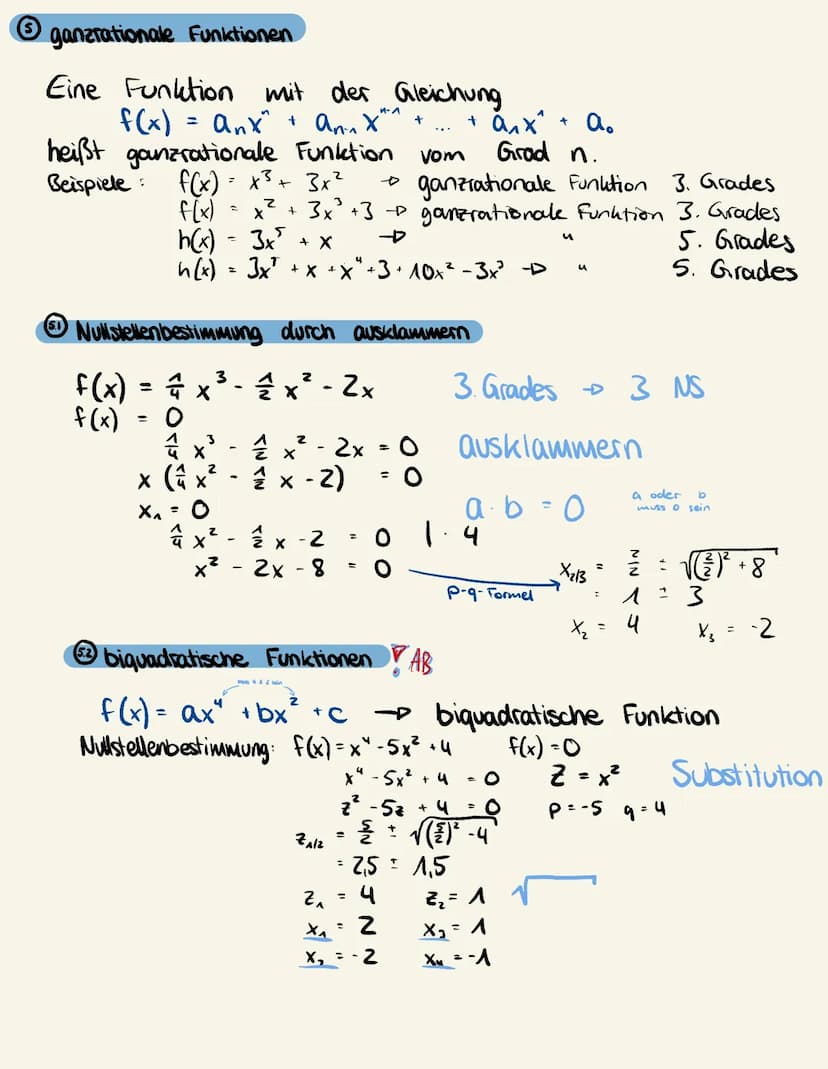 ⑤ ganzrationale Funktionen
Eine Funktion mit der Gleichung
f(x) = aₙxⁿ + aₙ₋₁xⁿ⁻¹ + ... + a₁x¹ + a₀
heißt ganzrationale Funktion vom Grad n.
Beispiele: f(x) = x³ + 3x² → ganzrationale Funktion 3. Grades
f(x) = x² + 3x³ + 3 → ganzrationale Funktion 3. Grades
h(x) = 3x⁵ + x → " 5. Grades
h(x) = 3x⁵ + x + x⁴ + 3 + 10x² - 3x³ → " 5. Grades
5.1 Nullstellenbestimmung durch ausklammern
f(x) = 1/4 x³ - 1/2 x² - 2x 3. Grades → 3 NS
f(x) = 0
1/4 x³ - 1/2 x² - 2x = 0 ausklammern
x (1/4 x² - 1/2 x - 2) = 0
x₁ = 0 a · b = 0 a oder b muss 0 sein
1/4 x² - 1/2 x - 2 = 0 | · 4
x² - 2x - 8 = 0 p-q-Formel → x₂/₃ = 2/2 ± √((2/2)² + 8)
= 1 ± 3
x₂ = 4 x₃ = -2
5.2 biquadratische Funktionen ! AB
f(x) = ax⁴ + bx² + c → biquadratische Funktion
Nullstellenbestimmung: f(x) = x⁴ - 5x² + 4 f(x) = 0
x⁴ - 5x² + 4 = 0 z = x² Substitution
z² - 5z + 4 = 0 p = -5 q = 4
z₁/₂ = 5/2 ± √((5/2)² - 4)
= 2,5 ± 1,5
z₁ = 4 z₂ = 1 √
x₁ = 2 x₃ = 1
x₂ = -2 x₄ = -1